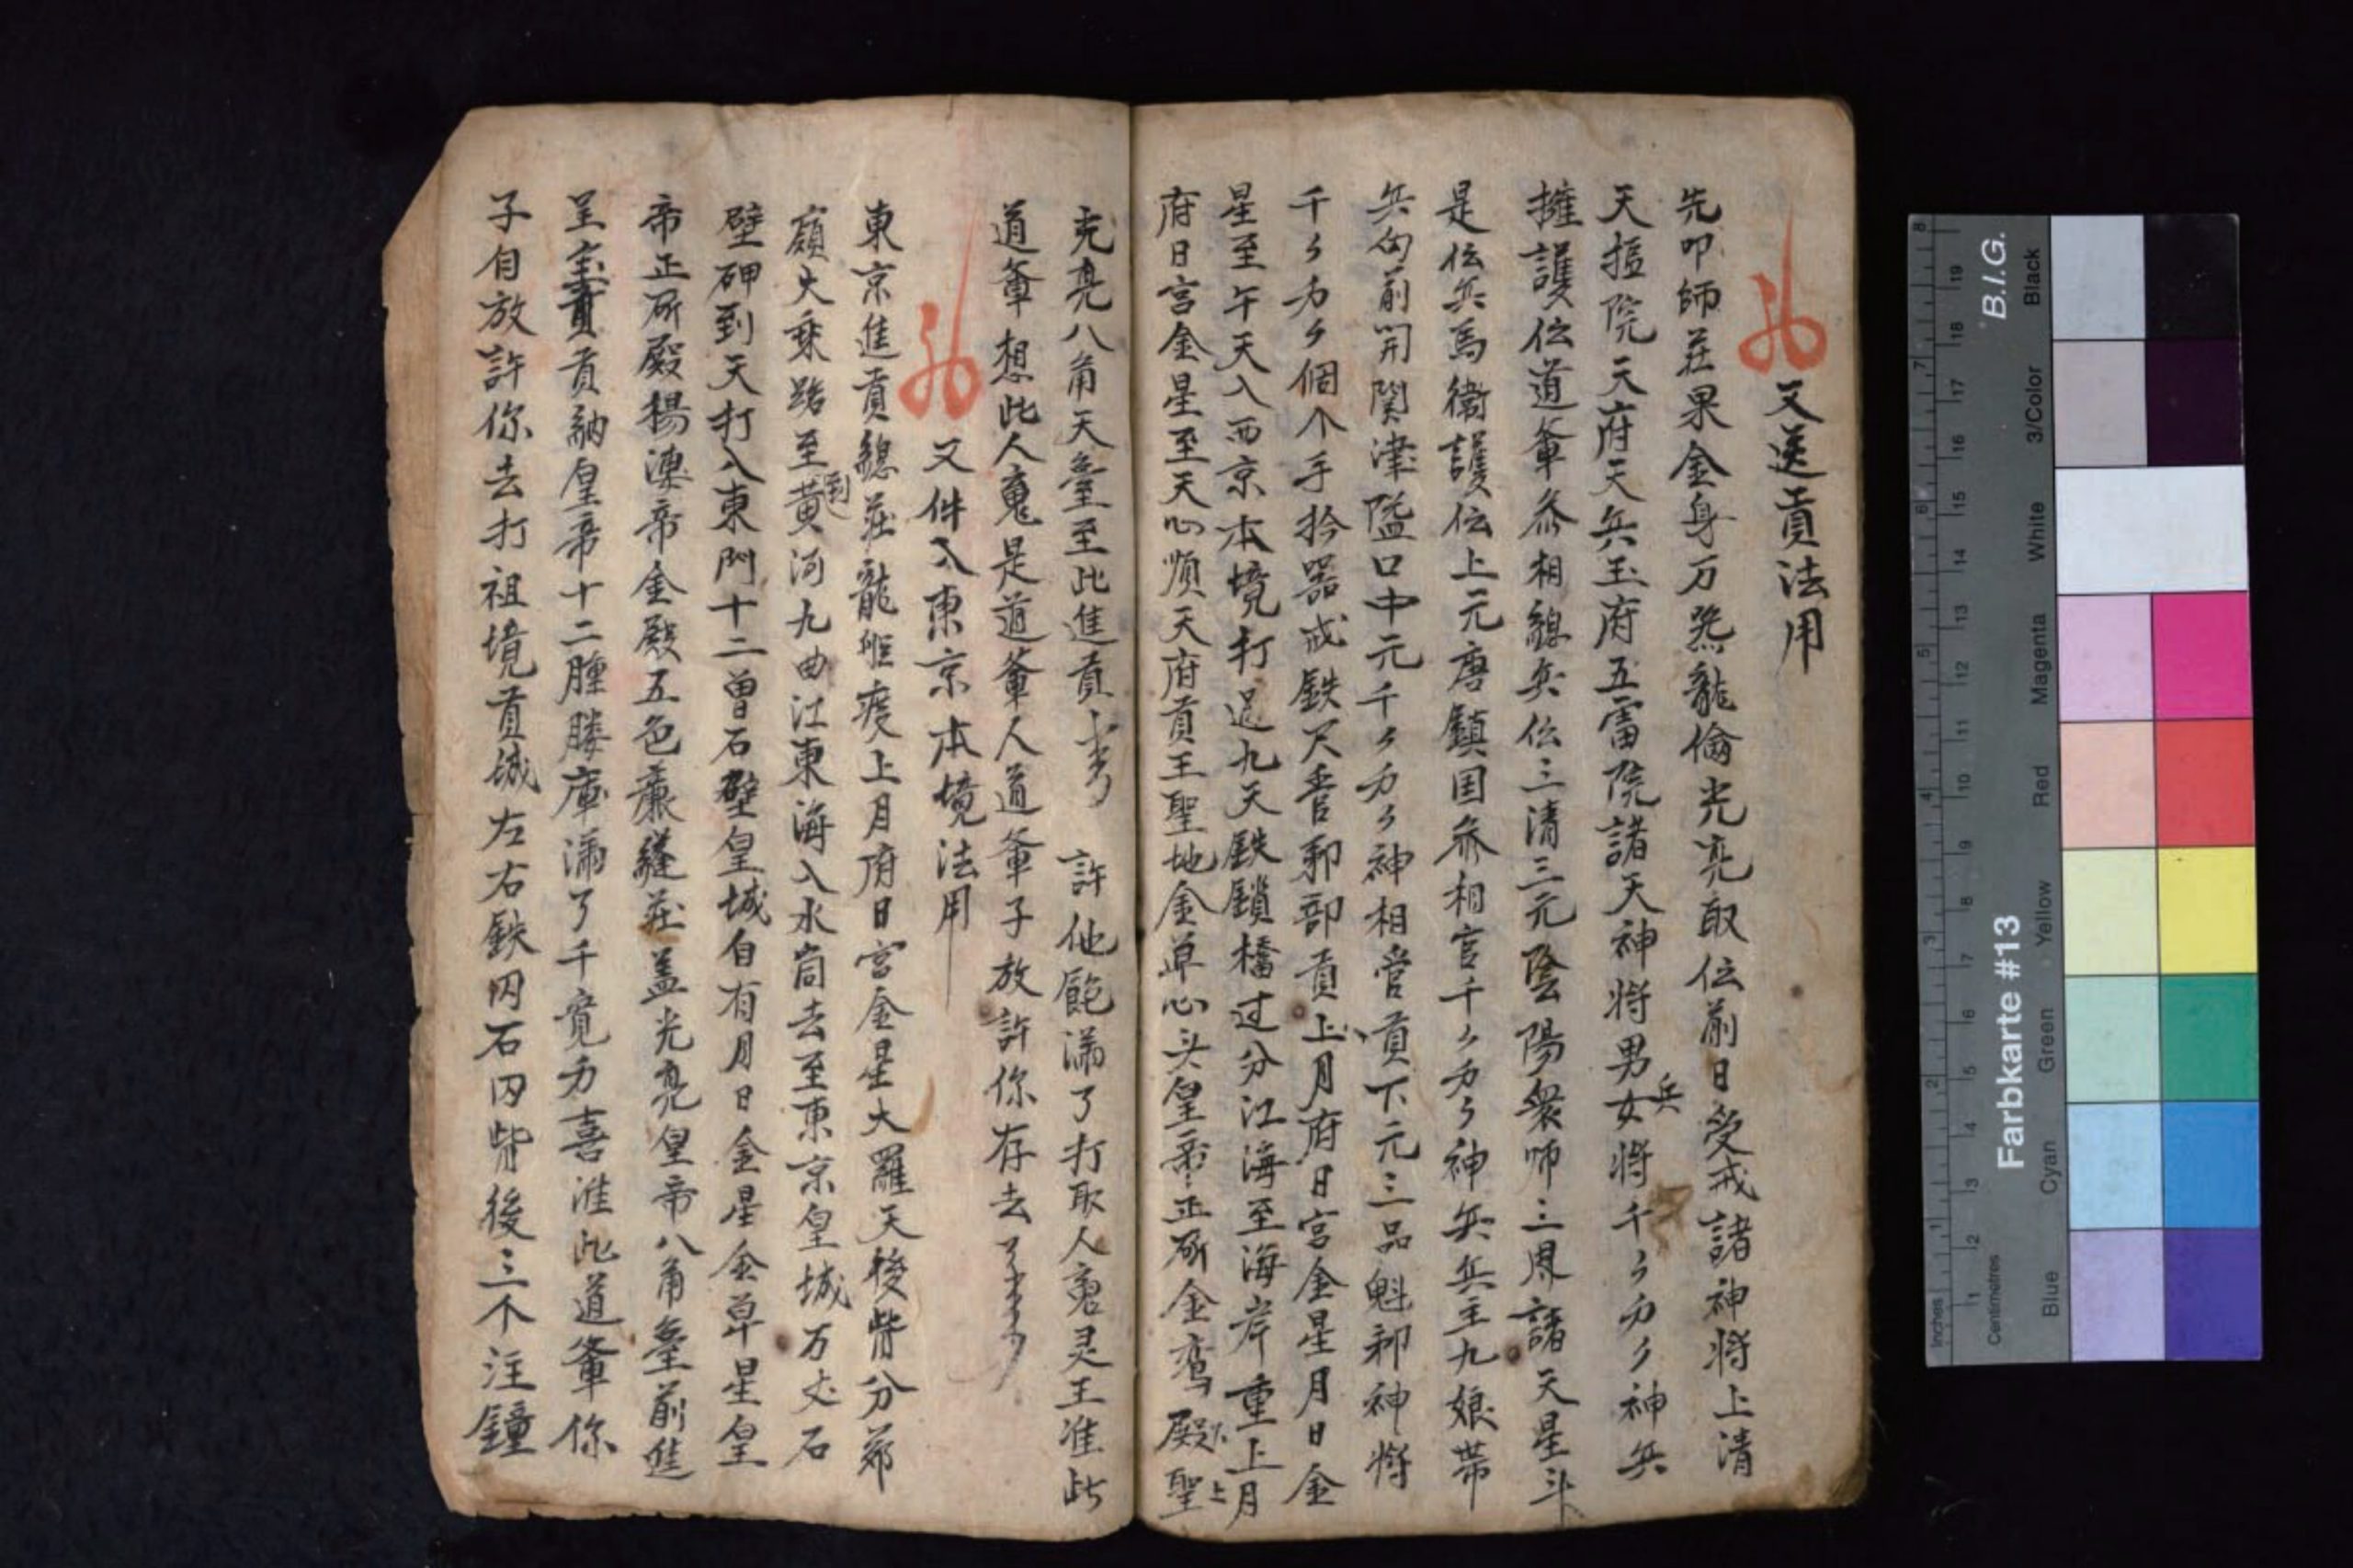 又送貢法用
先叩師莊果金身万煞龍倫光亮取位前日受戒諸神将上清
天樞院天府天兵玉府五雷院諸天神将男女兵将千々万々神兵
擁護位道軰叅相總兵位三清三元陰陽衆师三周諸天星斗
是位兵馬衞護位上元唐鎮国叅相官千々万々神兵兵主九娘帶
兵向前開関津隘口中元千々万々神相管貢下元三品魁神将
千々万々個个手拎器戒鉄尺香部貢上月府日宮金星月日金
星至午天入西京本境打過九天鉄鎖橋过分江海至海岸重上月
府日宮金星至天心順天府貢王聖地金草心头皇帝正所金鸾殿下聖上
亮亮八角天臺至此進貢 許他飽满了打取人䰟灵王准此
道軰想此人䰟是道軰人道軰子放許你存去
又件入東京本境法用
東京進貢總莊龍疲上月府日宮金星大羅天後背分
嶺大乘路至到黄河九曲江東海入水去至東京皇城万丈石
壁砷到天打入東門十二曽石壁皇城自有月日金星金草星皇
帝正所殿楊漣帝金殿五色簾縫莊盖光亮皇帝八角臺前進
呈宝貢貢納皇帝十二庫满了千寛万喜准此道軰你
子自放許你去打祖境貢城左右鉄囚石囚背後三个注鐘
B.I.G.
Farbkarte #13
Inches
Centimetres
Blue
Cyan
Green
Yellow
Red
Magenta
White
3/Color
Black